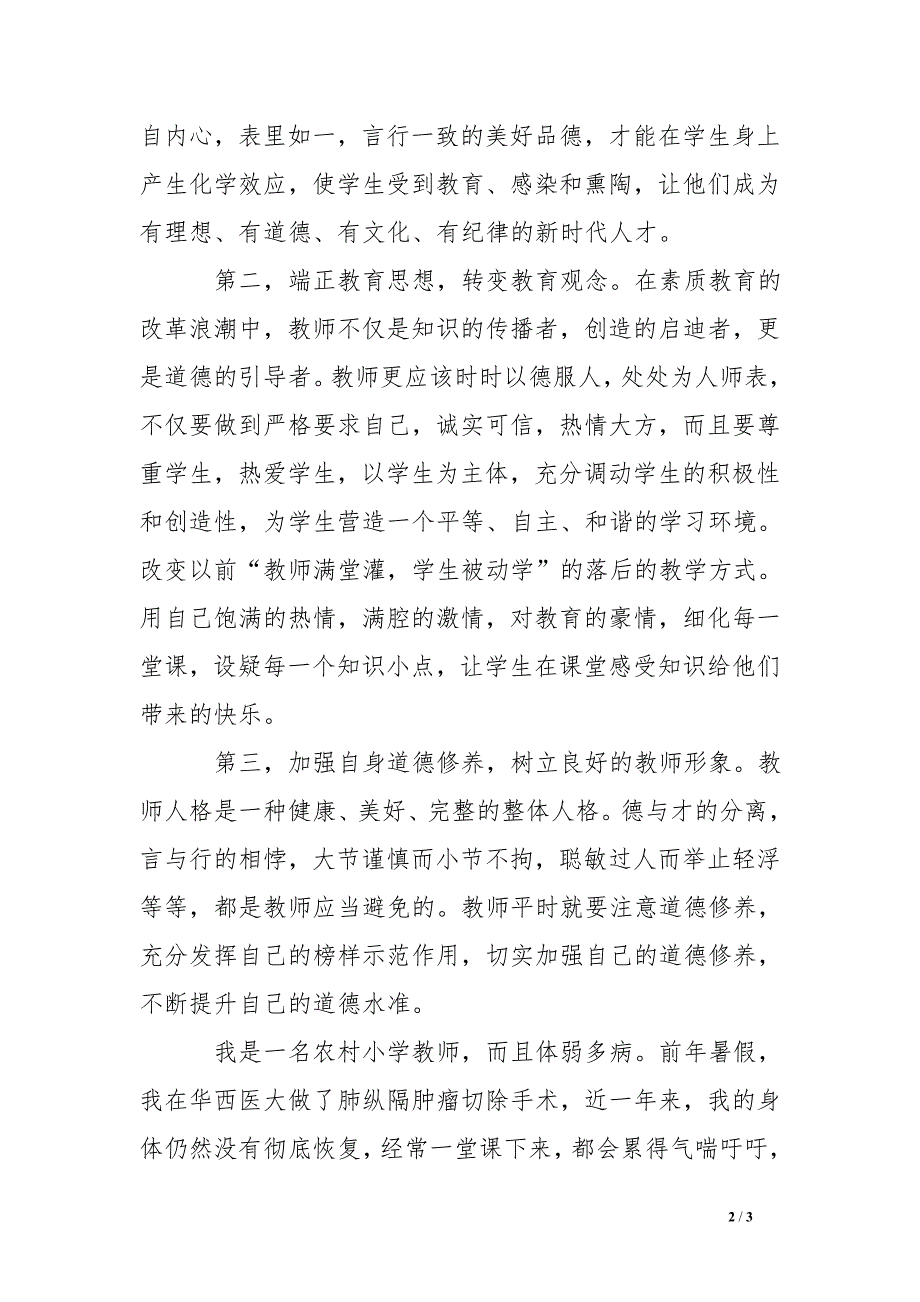 自内心，表里如一，言行一致的美好品德，才能在学生身上
产生化学效应，使学生受到教育、感染和熏陶，让他们成为
有理想、有道德、有文化、有纪律的新时代人才。
第二，端正教育思想，转变教育观念。在素质教育的
改革浪潮中，教师不仅是知识的传播者，创造的启迪者，更
是道德的引导者。教师更应该时时以德服人，处处为人师表，
不仅要做到严格要求自己，诚实可信，热情大方，而且要尊
重学生，热爱学生，以学生为主体，充分调动学生的积极性
和创造性，为学生营造一个平等、自主、和谐的学习环境。
改变以前“教师满堂灌，学生被动学”的落后的教学方式。
用自己饱满的热情，满腔的激情，对教育的豪情，细化每一
堂课，设疑每一个知识小点，让学生在课堂感受知识给他们
带来的快乐。
第三，加强自身道德修养，树立良好的教师形象。教
师人格是一种健康、美好、完整的整体人格。德与才的分离，
言与行的相悖，大节谨慎而小节不拘，聪敏过人而举止轻浮
等等，都是教师应当避免的。教师平时就要注意道德修养，
充分发挥自己的榜样示范作用，切实加强自己的道德修养，
不断提升自己的道德水准。
我是一名农村小学教师，而且体弱多病。前年暑假，
我在华西医大做了肺纵隔肿瘤切除手术，近一年来，我的身
体仍然没有彻底恢复，经常一堂课下来，都会累得气喘吁吁，
2 / 3